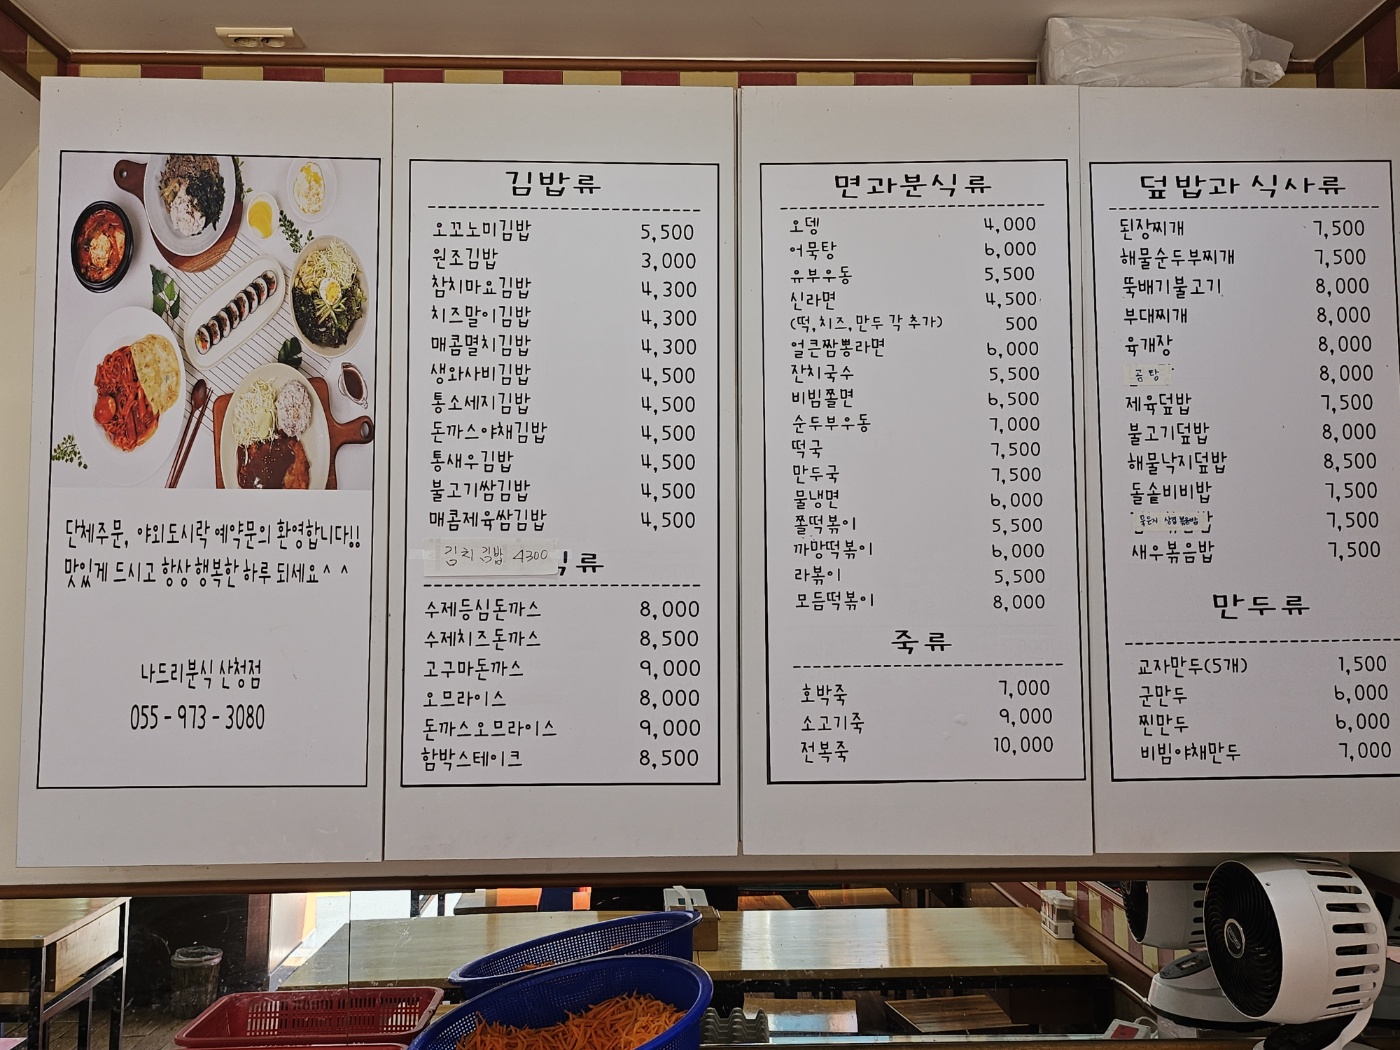 단체주문, 야외도시락 예약문의 환영합니다!!
맛있게 드시고 항상 행복한 하루 되세요^ ^
나드리분식 산청점
055 - 973 - 3080
김밥류
오꼬노미김밥 5,500
원조김밥 3,000
참치마요김밥 4,300
치즈말이김밥 4,300
매콤멸치김밥 4,300
생와사비김밥 4,500
통소세지김밥 4,500
돈까스야채김밥 4,500
통새우김밥 4,500
불고기쌈김밥 4,500
매콤제육쌈김밥 4,500
김치 김밥 4300
식류
수제등심돈까스 8,000
수제치즈돈까스 8,500
고구마돈까스 9,000
오므라이스 8,000
돈까스오므라이스 9,000
함박스테이크 8,500
면과분식류
오뎅 4,000
어묵탕 6,000
유부우동 5,500
신라면 4,500
(떡,치즈,만두 각 추가) 500
얼큰짬뽕라면 6,000
잔치국수 5,500
비빔쫄면 6,500
순두부우동 7,000
떡국 7,500
만두국 7,500
물냉면 6,000
쫄떡볶이 5,500
까망떡볶이 6,000
라볶이 5,500
모듬떡볶이 8,000
죽류
호박죽 7,000
소고기죽 9,000
전복죽 10,000
덮밥과 식사류
된장찌개 7,500
해물순두부찌개 7,500
뚝배기불고기 8,000
부대찌개 8,000
육개장 8,000
곰탕 8,000
제육덮밥 7,500
불고기덮밥 8,000
해물낙지덮밥 8,500
돌솥비비밥 7,500
묵은지 삼겹 볶음밥 7,500
새우볶음밥 7,500
만두류
교자만두(5개) 1,500
군만두 6,000
찐만두 6,000
비빔야채만두 7,000